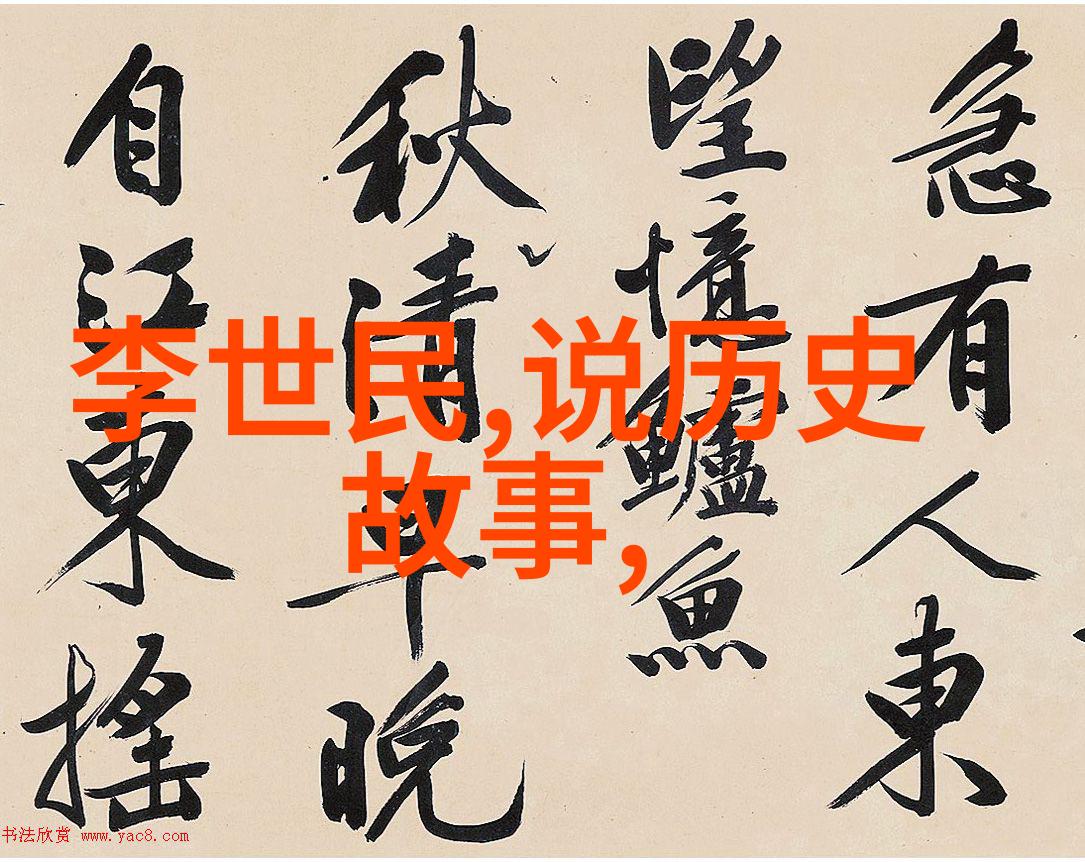 急有人東
望憶鱸魚
秋清早晚
自江東搖
李世民,说历史
故事,
书法欣赏 www.yac8.com